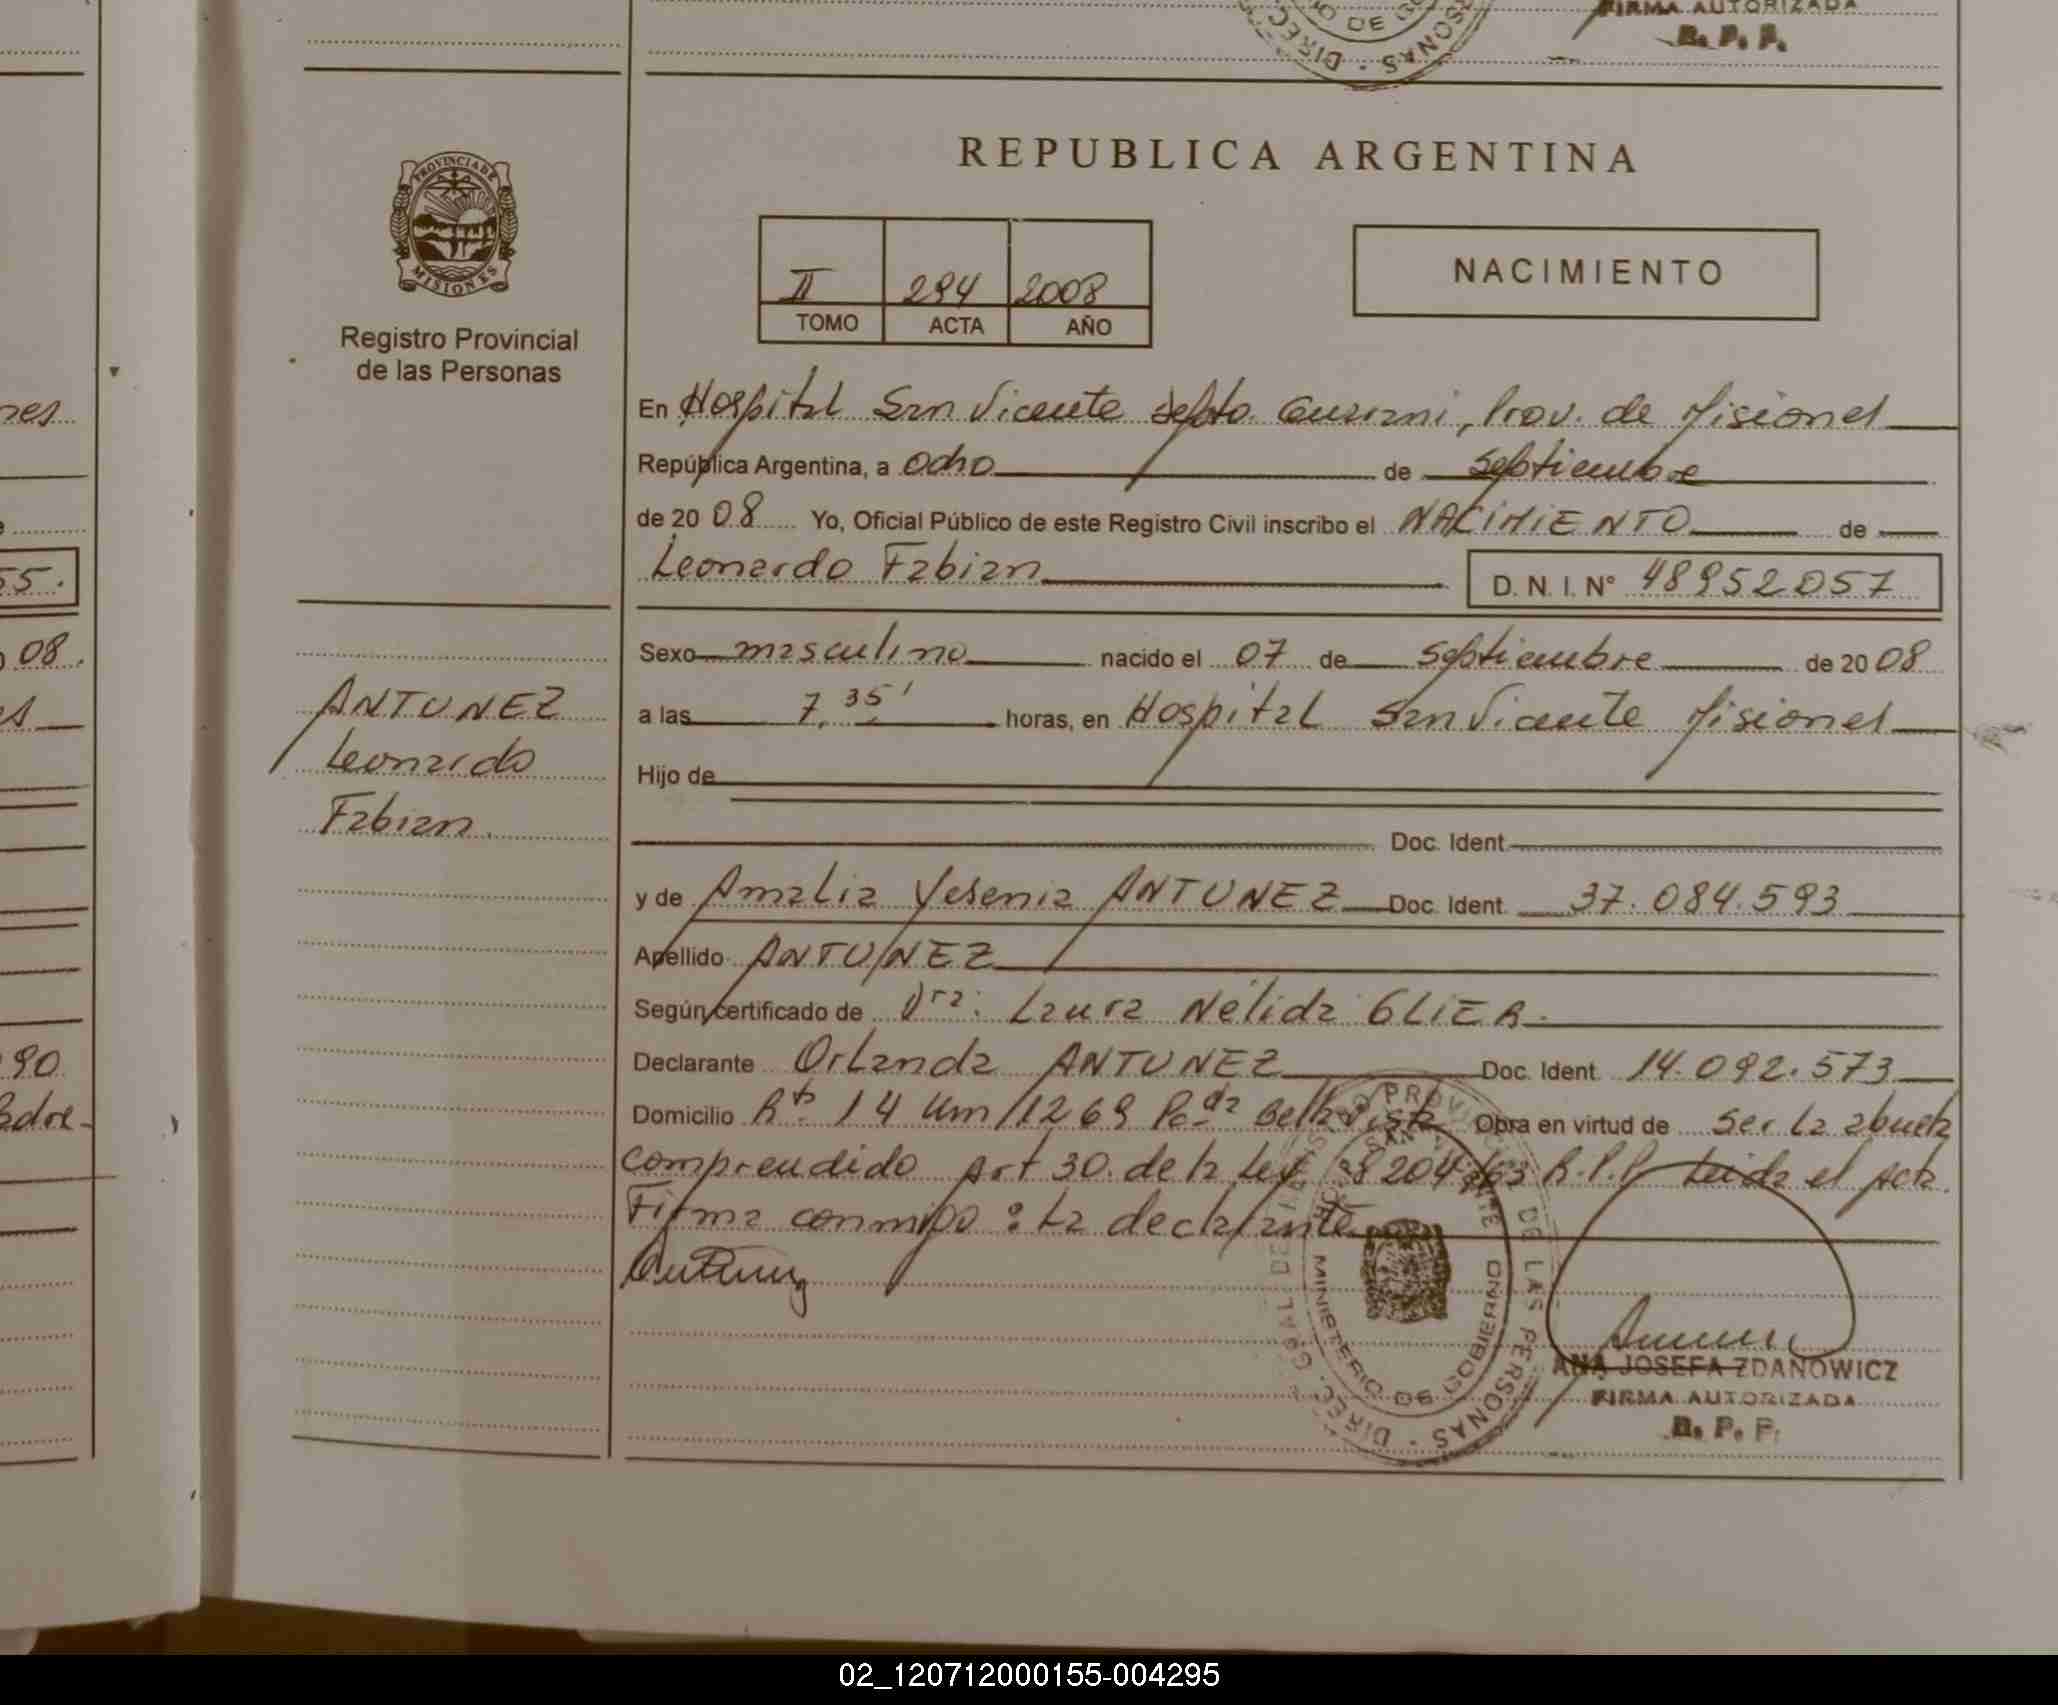 FIRMA AUTORIZADA
R. P. P.
REPUBLICA ARGENTINA
PROVINCIA DE
MISIONES
Registro Provincial
de las Personas
II 294 2008
TOMO ACTA AÑO
NACIMIENTO
En Hospital San Vicente Depto. Guarani, Prov. de Misiones
República Argentina, a ocho de Septiembre
de 2008 Yo, Oficial Público de este Registro Civil inscribo el NACIMIENTO de
Leonardo Fabian D. N. I. N° 48952057
Sexo masculino nacido el 07 de Septiembre de 2008
a las 7,35' horas, en Hospital San Vicente Misiones
Hijo de
Doc. Ident.
y de Amalia Yesenia ANTUNEZ Doc. Ident. 37.084.593
Apellido ANTUNEZ
Según certificado de Dra: Laura Nélida GLIER.
Declarante Orlanda ANTUNEZ Doc. Ident. 14.092.573
Domicilio Rta 14 Km 1269 Pcda Bella Vista Obra en virtud de ser la abuela
comprendido Art 30. de la Ley 8204/63 R.P.P Leida el Acta.
Firma conmigo: La declarante
ANTUNEZ
Leonardo
Fabian.
MINISTERIO DE GOBIERNO
DE LAS PERSONAS
ANA JOSEFA ZDANOWICZ
FIRMA AUTORIZADA
R. P. P.
nes
55.
08.
90
02_120712000155-004295